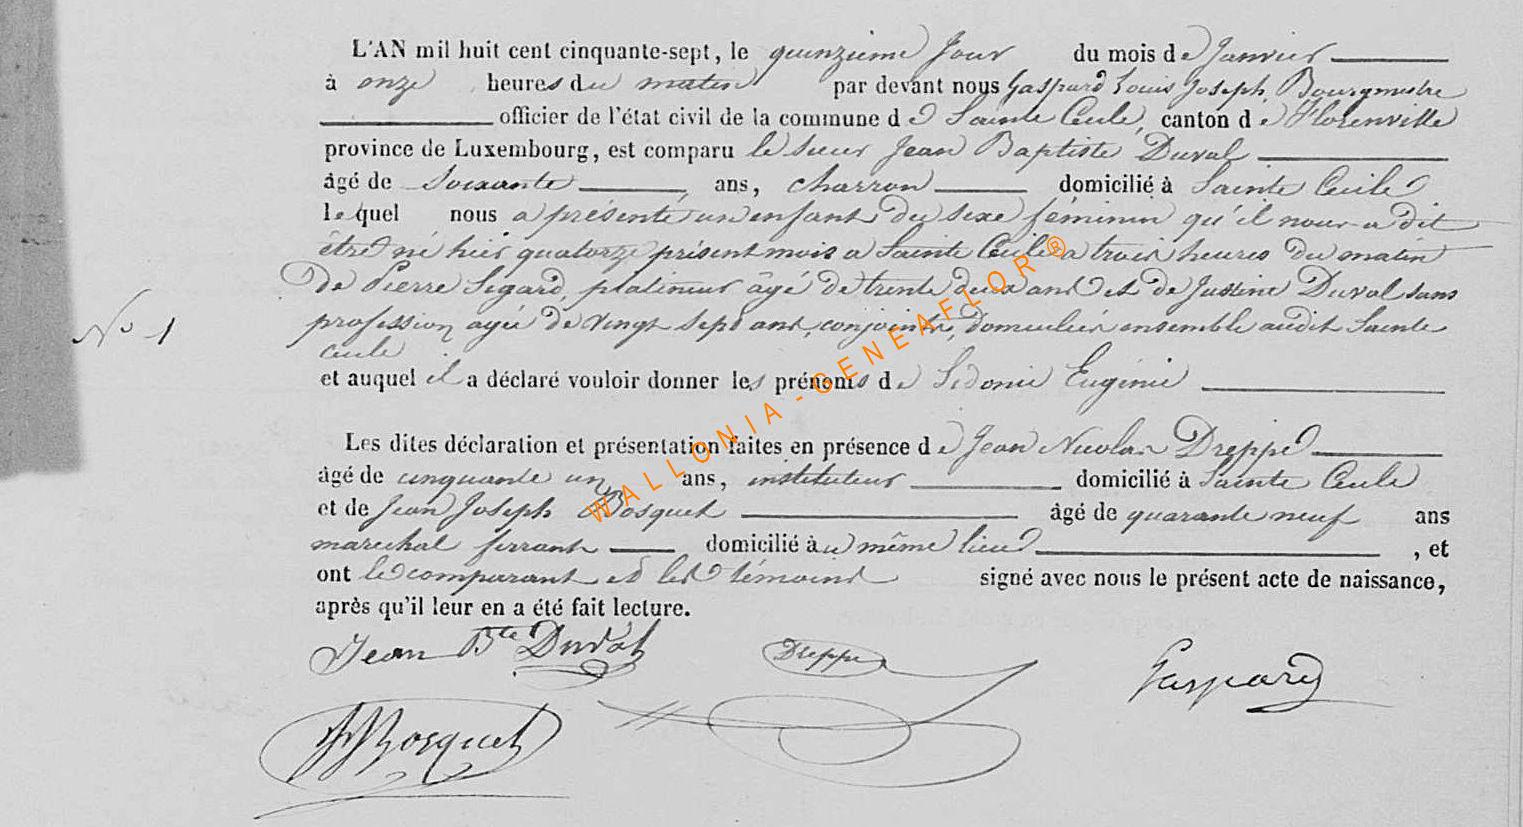 L'AN mil huit cent cinquante-sept, le quinzieme Jour du mois de Janvier
à onze heures du matin par devant nous Gaspard Louis Joseph, Bourgmestre
officier de l'état civil de la commune de Sainte Cecile, canton de Florenville
province de Luxembourg, est comparu le sieur Jean Baptiste Duval
âgé de Soixante ans, charron domicilié à Sainte Cecile
lequel nous a présenté un enfant du sexe féminin qu'il nous a dit
être né hier quatorze présent mois a Sainte Cecile a trois heures du matin
de Pierre Sigard, platineur âgé de trente deux ans et de Justine Duval sans
N° 1
profession agée de vingt sept ans, conjoints, domiciliés ensemble audit Sainte
Cecile
et auquel il a déclaré vouloir donner les prénoms de Sidonie Eugénie
Les dites déclaration et présentation faites en présence de Jean Nicolas Dreppe
âgé de cinquante un ans, instituteur domicilié à Sainte Cecile
et de Jean Joseph Bosquet âgé de quarante neuf ans
marechal ferrant domicilié au même lieu, et
ont le comparant et les témoins signé avec nous le présent acte de naissance,
après qu'il leur en a été fait lecture.
Jean Bte Duval Dreppe Gaspard
JJBosquet
WALLONIA-GENEAFLOR®